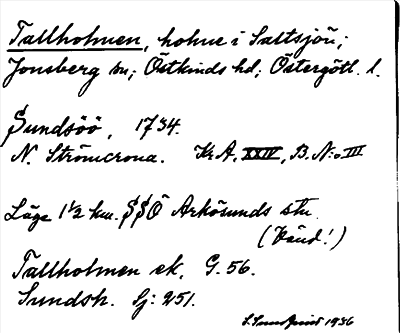 Tallholmen, holme i Saltsjön;
Jonsberg sn; Östkinds hd; Östergötl. l.
Sundsöö, 1734.
N. Strömcrona. Kr A, XXIV, B. N:o III
Läge 1½ km. SSÖ Arkösunds stn.
(Känd!)
Tallholmen ek. G. 56.
Sundsh. Sj: 251.
S. Sundquist 1936